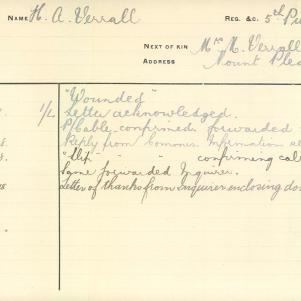 NAME H. A. Verrall REG. &C. 5th Pu
NEXT OF KIN Mrs M. Verrall
ADDRESS Mount Plea
"Wounded"
1/L Letter acknowledged.
P/Cable, confirmed forwarded
Reply from Comons. Information re
"Slip" " - " confirming cal
Same forwarded Inquirer.
Letter of thanks from Inquirer enclosing do